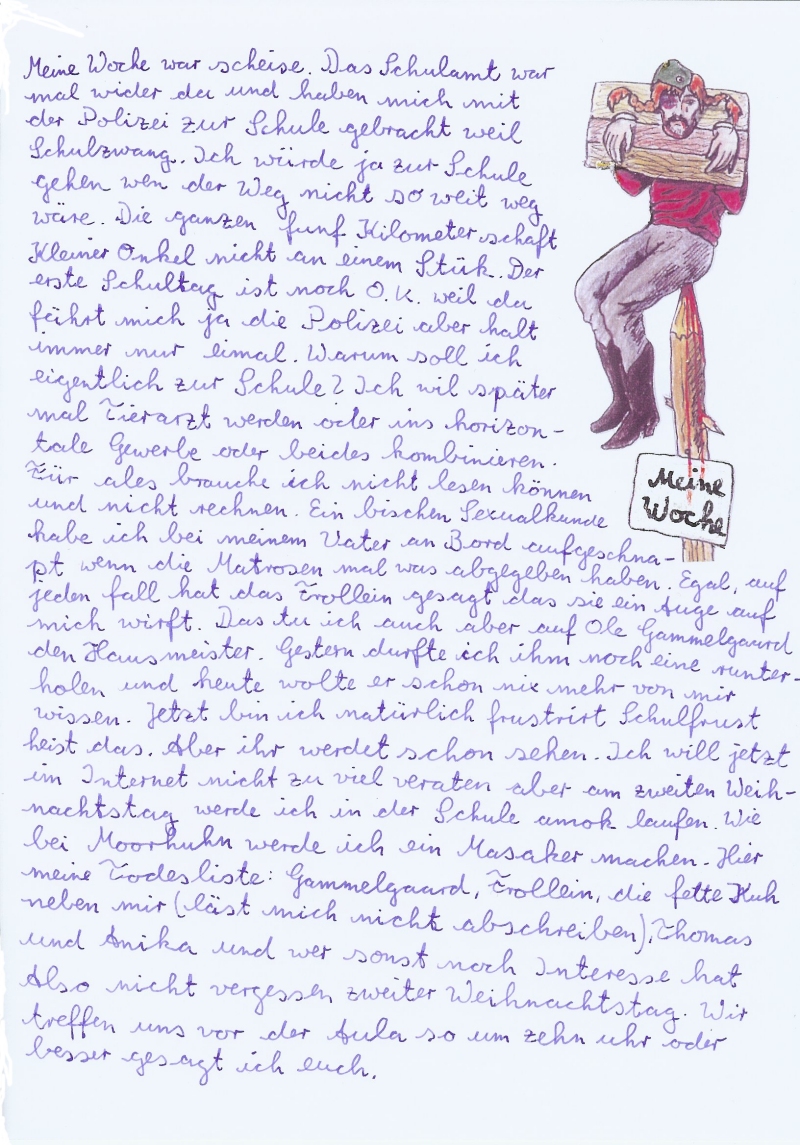 Meine Woche war scheise. Das Schulamt war
mal wider da und haben mich mit
der Polizei zur Schule gebracht weil
Schulzwang. Ich würde ja zur Schule
gehen wen der Weg nicht so weit weg
wäre. Die ganzen funf Kilometer schaft
Kleiner Onkel nicht an einem Stük. Der
erste Schultag ist noch O.K. weil da
fährt mich ja die Polizei aber halt
immer nur eimal. Warum soll ich
eigentlich zur Schule? Ich wil später
mal Tierarzt werden oder ins horizon-
tale Gewerbe oder beides kombinieren.
Für ales brauche ich nicht lesen können
und nicht rechnen. Ein bischen Sexualkunde
habe ich bei meinem Vater an Bord aufgeschna-
pt wenn die Matrosen mal was abgegeben haben. Egal, auf
jeden fall hat das Frollein gesagt das sie ein Auge auf
mich wirft. Das tu ich auch aber auf Ole Gammelgaard
den Hausmeister. Gestern durfte ich ihm noch eine runter-
holen und heute wolte er schon nix mehr von mir
wissen. Jetzt bin ich natürlich frustrirt Schulfrust
heist das. Aber ihr werdet schon sehen. Ich will jetzt
im Internet nicht zu viel veraten aber am zweiten Weih-
nachtstag werde ich in der Schule amok laufen. Wie
bei Moorhuhn werde ich ein Masaker machen. Hier
meine Todesliste: Gammelgaard, Frollein, die fette Kuh
neben mir (läst mich nicht abschreiben), Thomas
und Anika und wer sonst noch Interesse hat
Also nicht vergessen zweiter Weihnachtstag. Wir
treffen uns vor der Aula so um zehn uhr oder
besser gesagt ich euch.
Meine
Woche